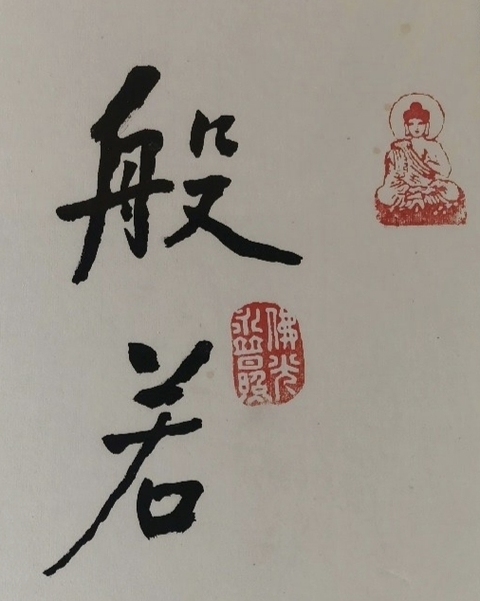 般若
佛光
永普照